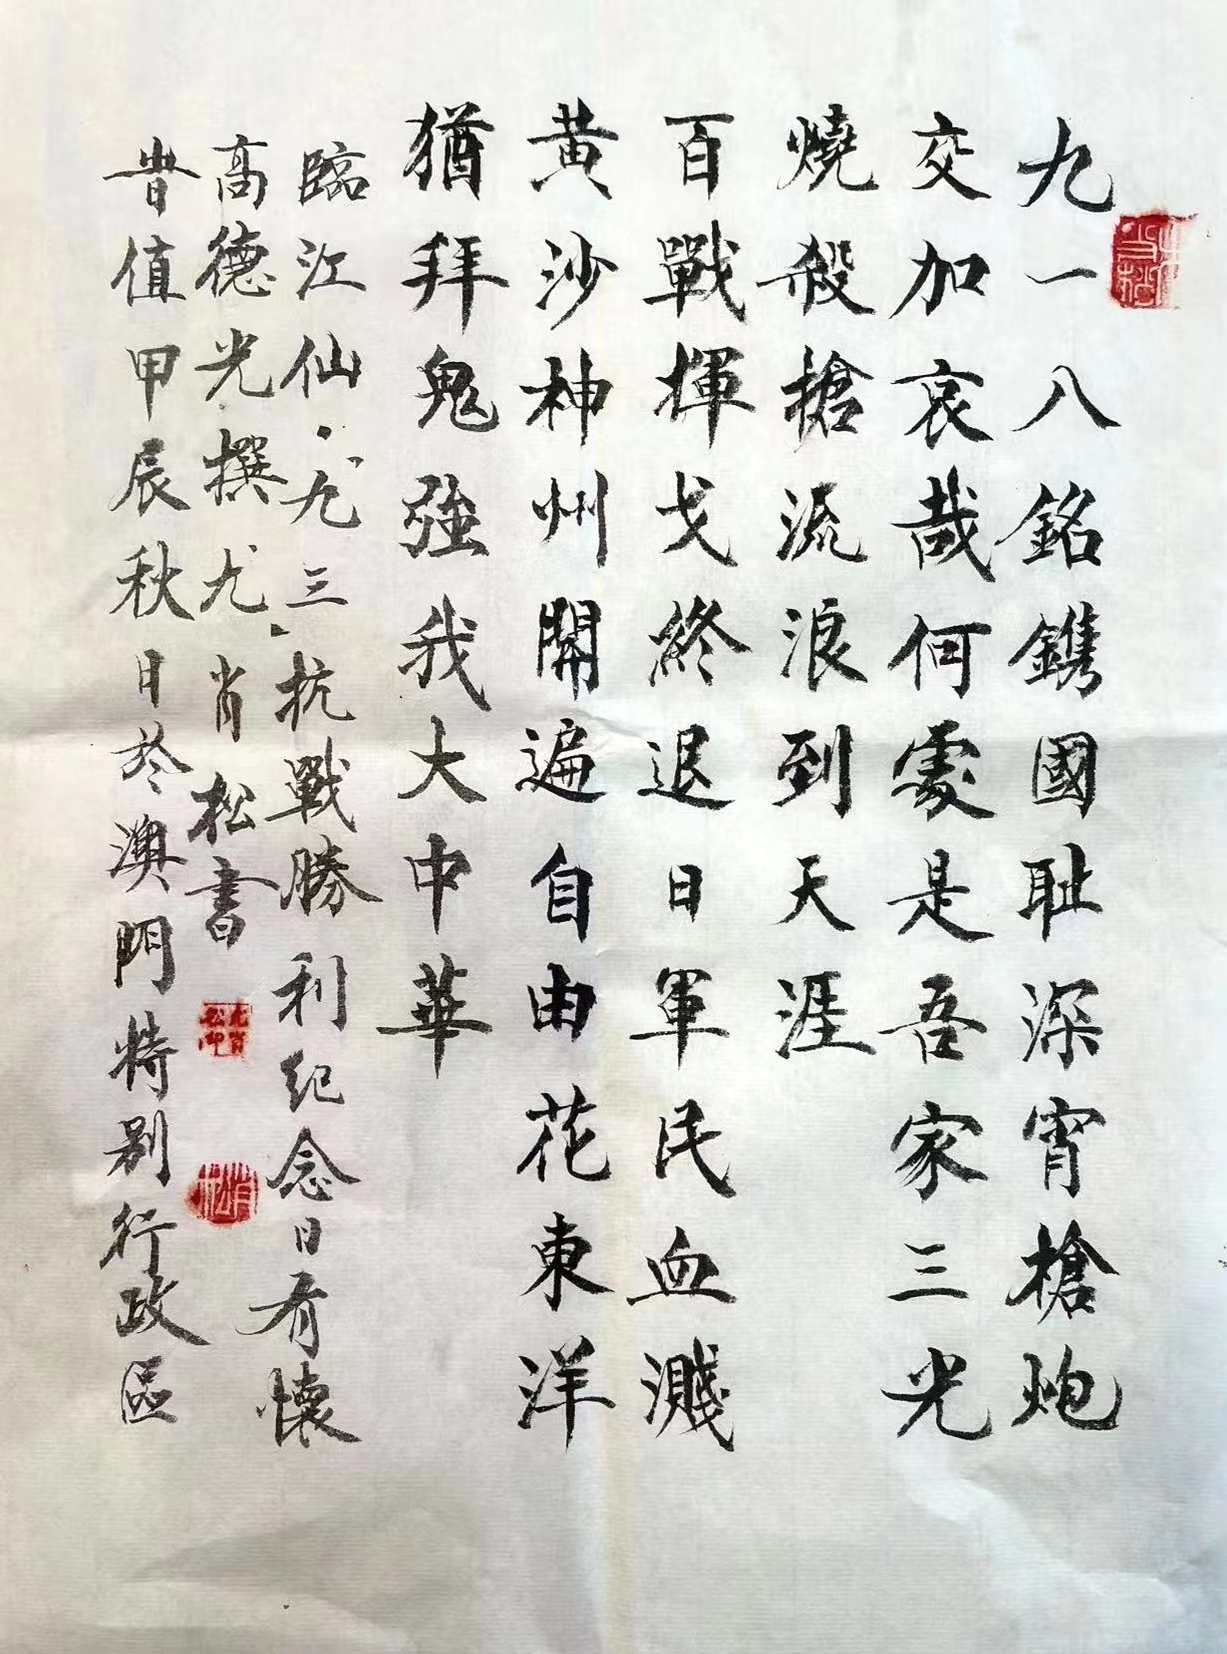 九一八銘鐫國耻深宵槍炮
交加哀哉何處是吾家三光
燒殺搶流浪到天涯
百戰揮戈終退日軍民血濺
黄沙神州開遍自由花東洋
猶拜鬼強我大中華
臨江仙·九三抗戰勝利紀念日有懷
高德光撰尤肖松書
昔值甲辰秋日於澳門特别行政區